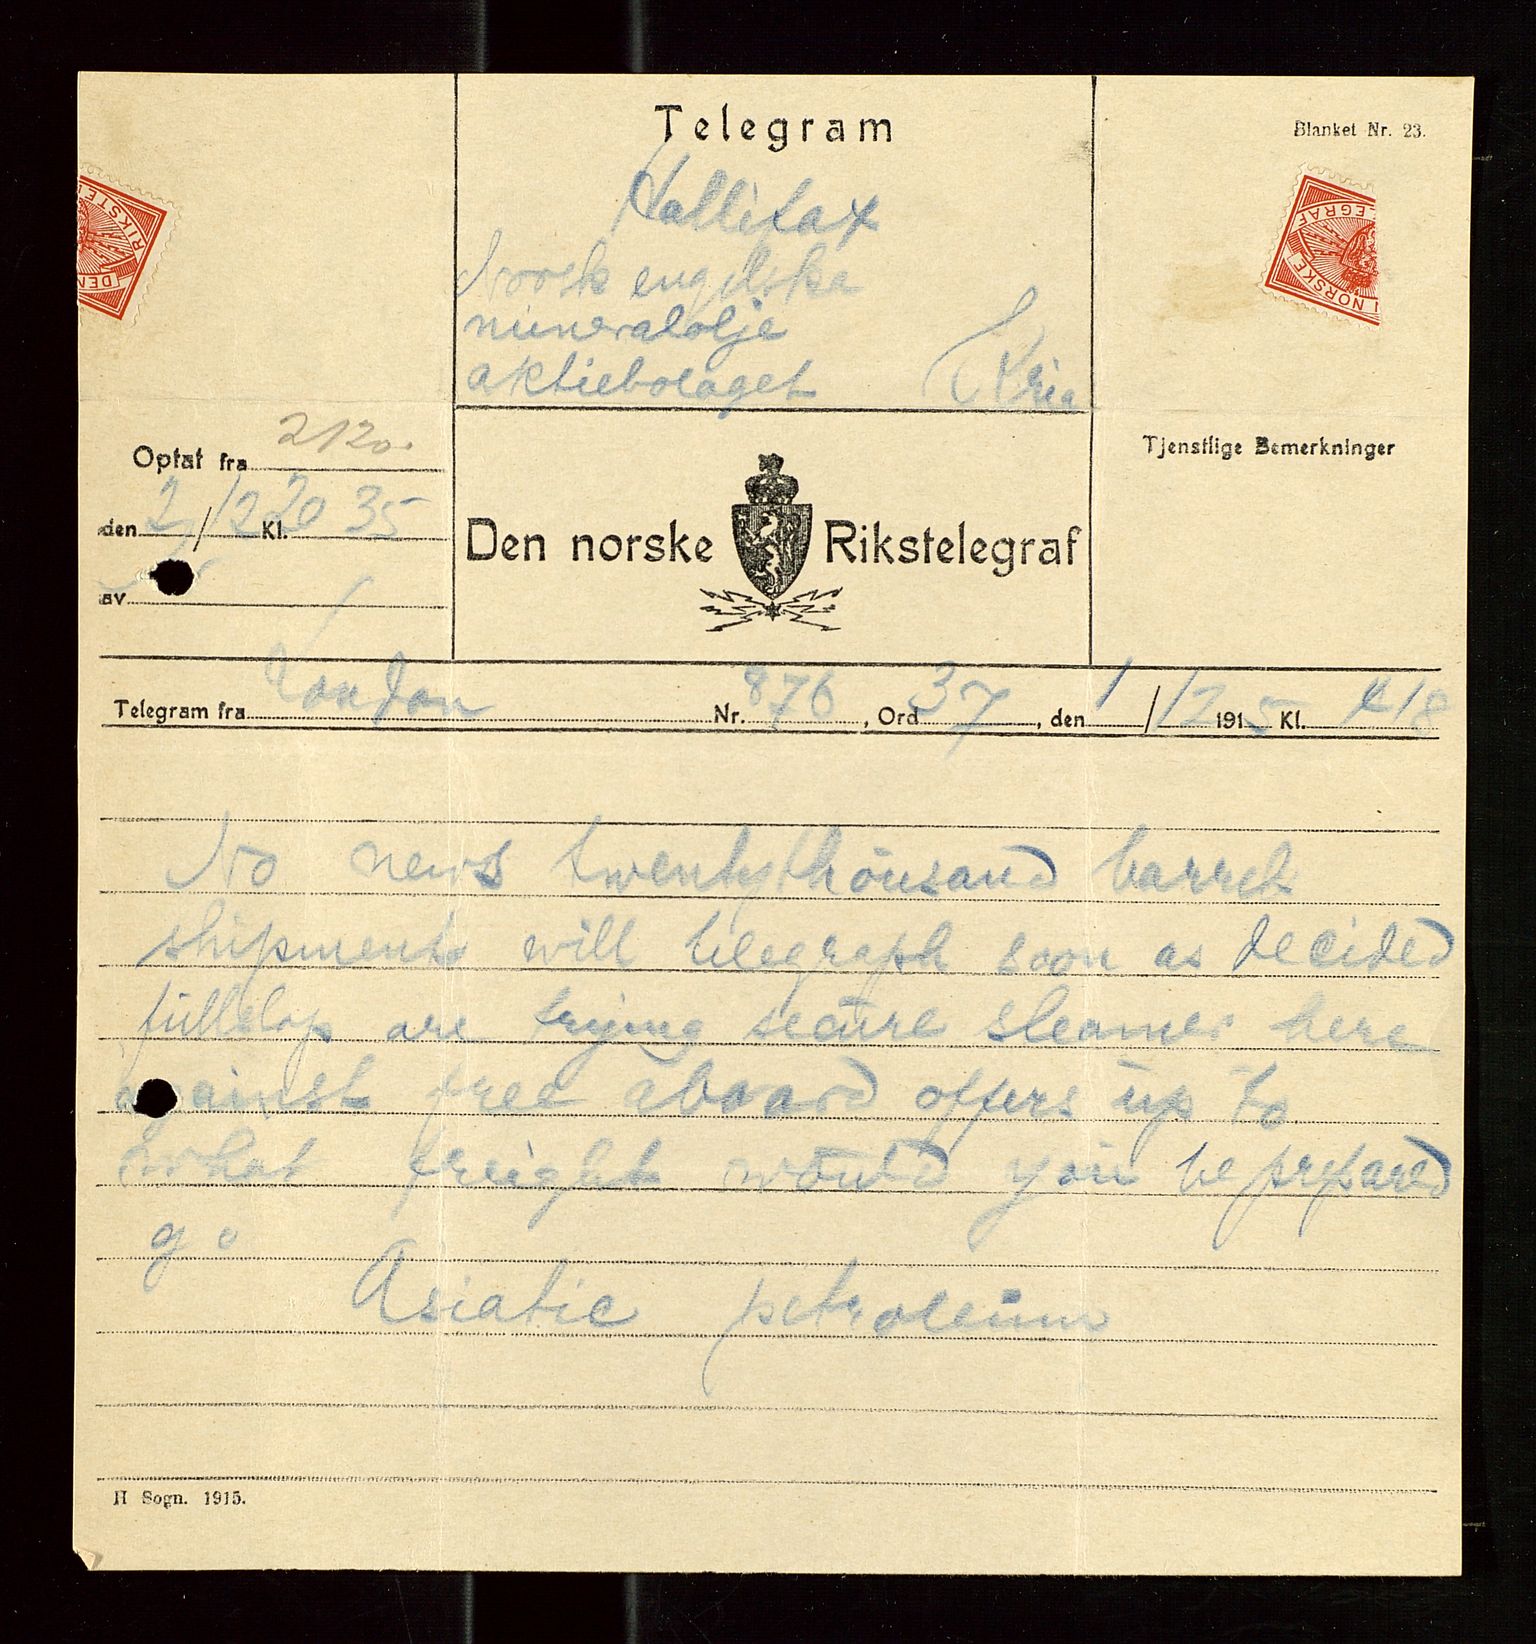 Telegram
Blanket Nr. 23.
Hallifax
Norsk engelske
mineralolje
aktiebolaget Kria
Optat fra 2120.
den 2/12 Kl. 20 35
av
Den norske Rikstelegraf
Tjenstlige Bemerkninger
Telegram fra London Nr. 876, Ord 37, den 1/12 1915 Kl. 418
No news twentythousand barrels
shipment will telegraph soon as decided
fullstop are trying secure steamer here
against free aboard offers up to
what freight would you be prepared
go
Asiatic petroleum
H Sogn. 1915.